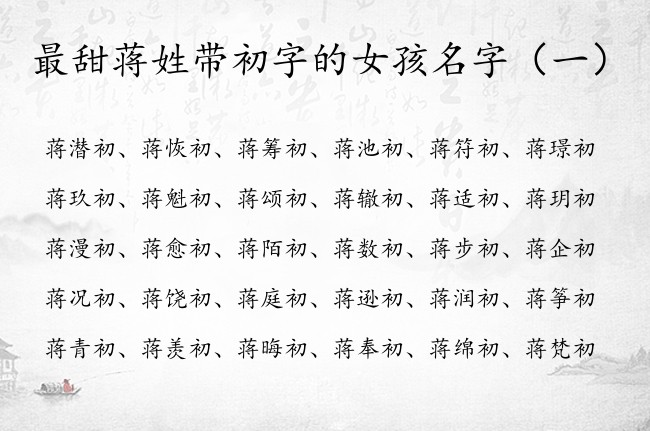 最甜蒋姓带初字的女孩名字（一）
蒋潜初、蒋恢初、蒋筹初、蒋池初、蒋符初、蒋璟初
蒋玖初、蒋魁初、蒋颂初、蒋辙初、蒋适初、蒋玥初
蒋漫初、蒋愈初、蒋陌初、蒋数初、蒋步初、蒋企初
蒋况初、蒋饶初、蒋庭初、蒋逊初、蒋润初、蒋筝初
蒋青初、蒋羡初、蒋晦初、蒋奉初、蒋绵初、蒋梵初